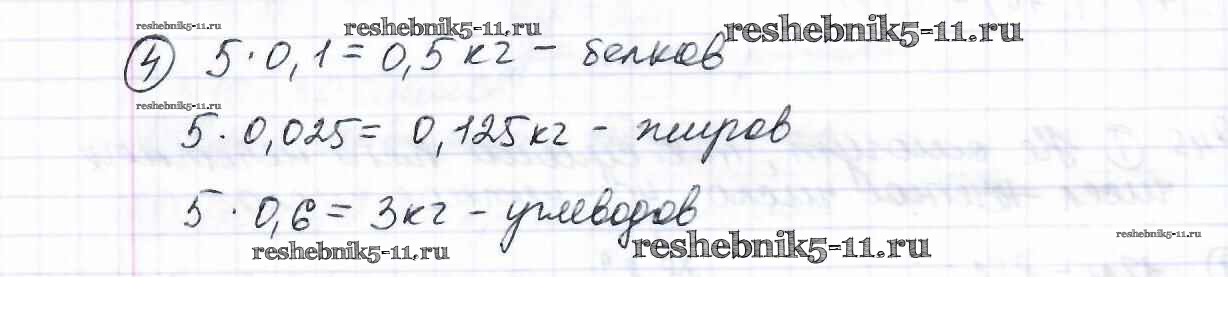 reshebnik5-11.ru reshebnik5-11.ru reshebnik5-11.ru
④ 5 · 0,1 = 0,5 кг – белков
reshebnik5-11.ru
5 · 0,025 = 0,125 кг – жиров
5 · 0,6 = 3 кг – углеводов
reshebnik5-11.ru reshebnik5-11.ru reshebnik5-11.ru